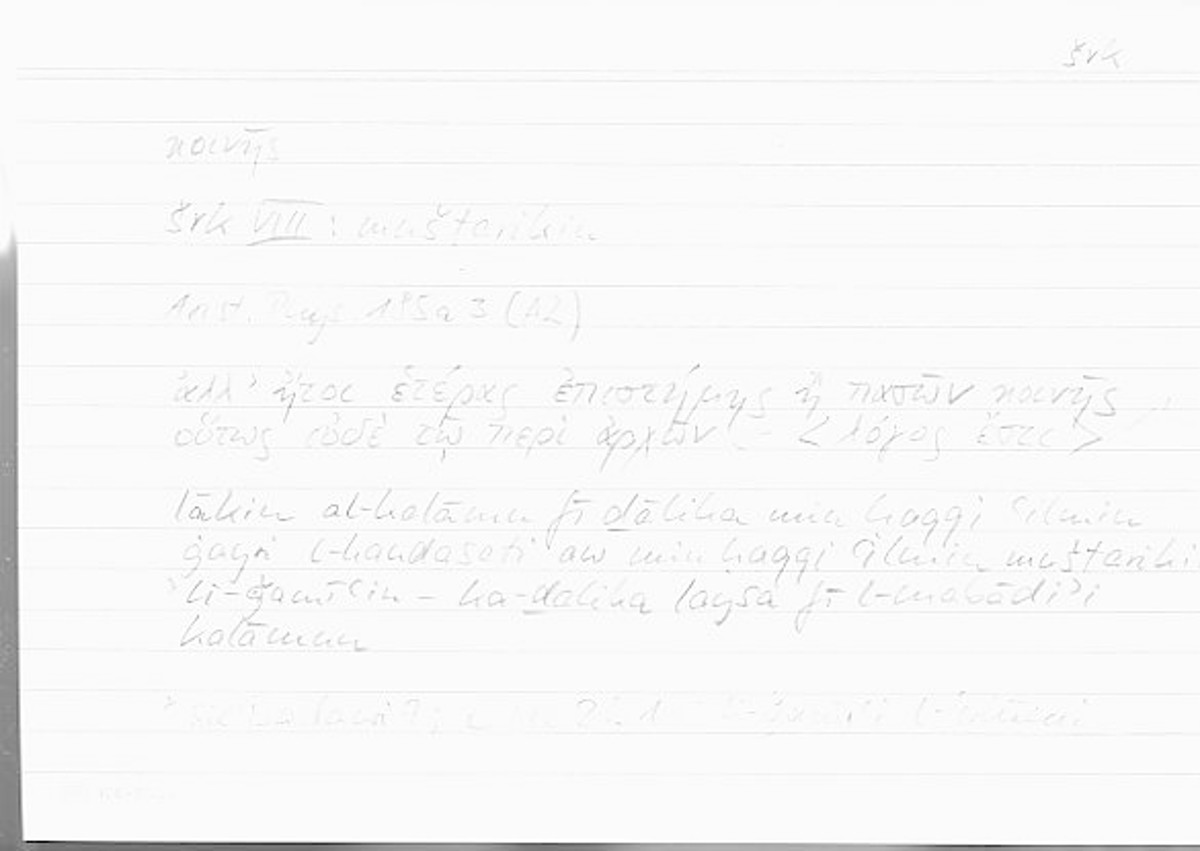 šrk
κοινῆς
šrk VIII : muštarikin
Arist. Phys 185a 3 (A2)
ἀλλ' ἤτοι ἑτέρας ἐπιστήμης ἢ πασῶν κοινῆς,
οὕτως οὐδὲ τῷ περὶ ἀρχῶν – <λόγος ἔστι>
lākin al-kalāmu fī ḏālika min ḥaqqi ʿilmin
ġayri l-handasati aw min ḥaqqi ʿilmin muštarikin
li-ǧamīʿin – ka-ḏālika laysa fī l-mabādiʾi
kalāmun